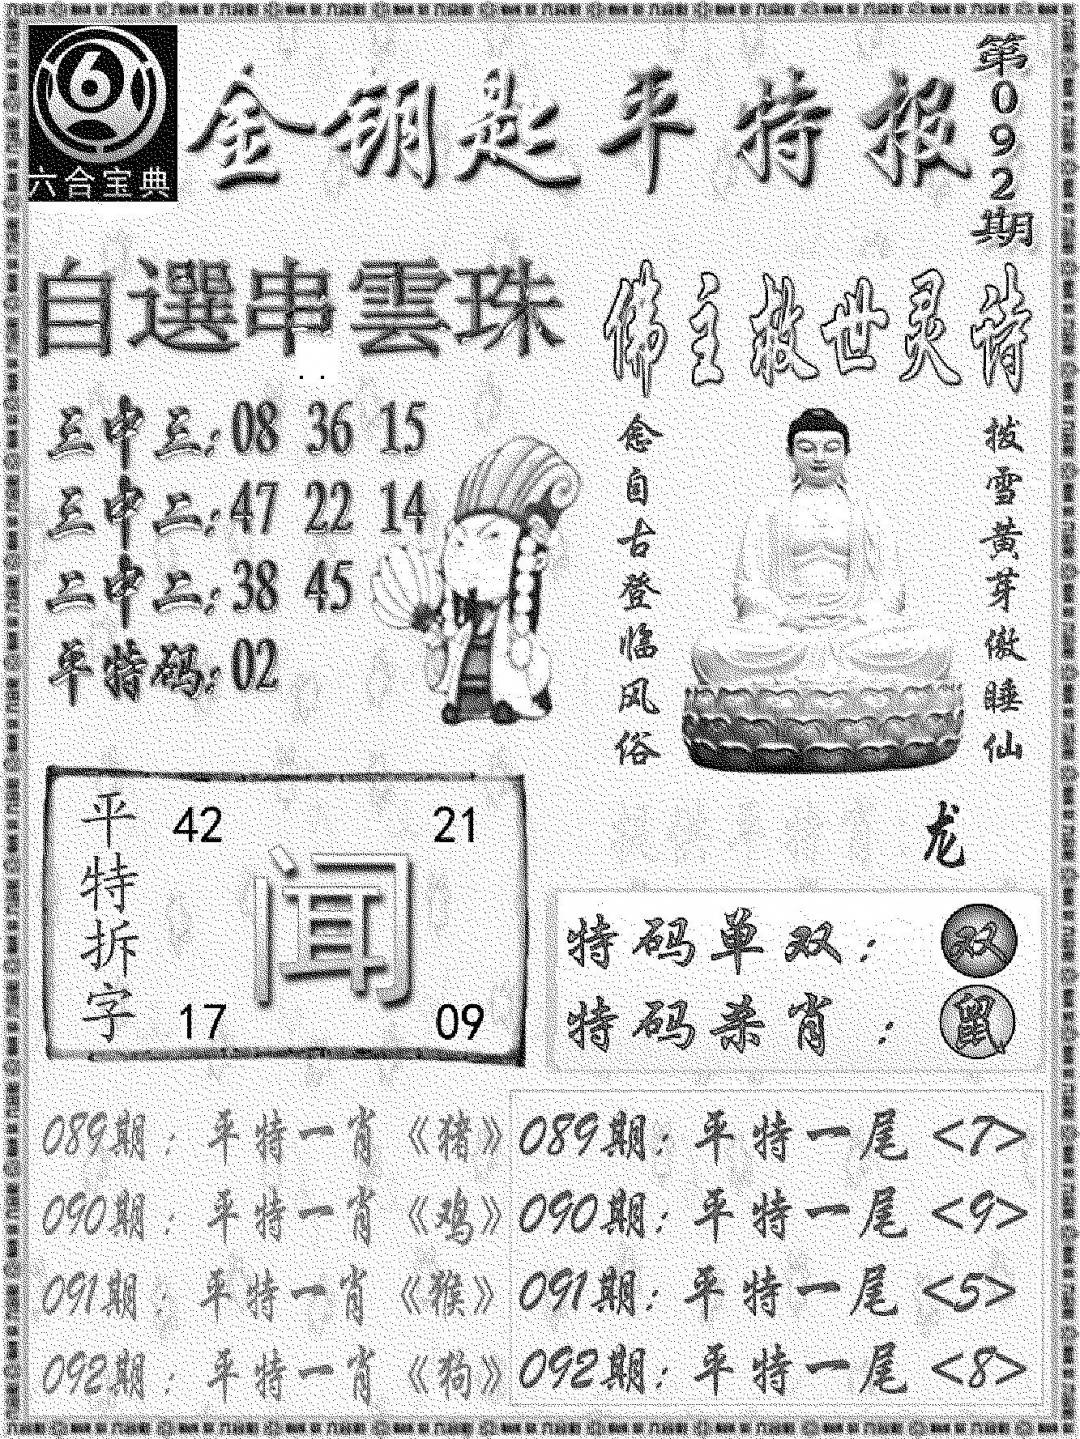 六合宝典
金钥匙平特报
第092期
自選串雲珠
三中三:08 36 15
三中二:47 22 14
二中二:38 45
单特码:02
佛主救世灵诗
拨雪黄芽傲睡仙
念自古登临风俗
龙
平特拆字
42 21
闻
17 09
特码单双: 双
特码杀肖: 鼠
089期: 平特一肖《猪》
090期: 平特一肖《鸡》
091期: 平特一肖《猴》
092期: 平特一肖《狗》
089期: 平特一尾<7>
090期: 平特一尾<9>
091期: 平特一尾<5>
092期: 平特一尾<8>